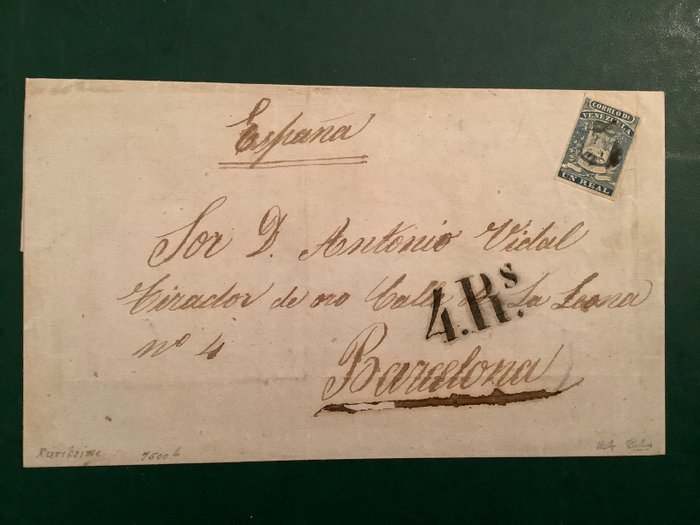 España
CORREO DE
VENEZUELA
UN REAL
Sor D. Antonio Vidal
Tirador de oro Calle de La Leona
nº 4
4.Rs.
Barcelona
Rarissime 7500 f